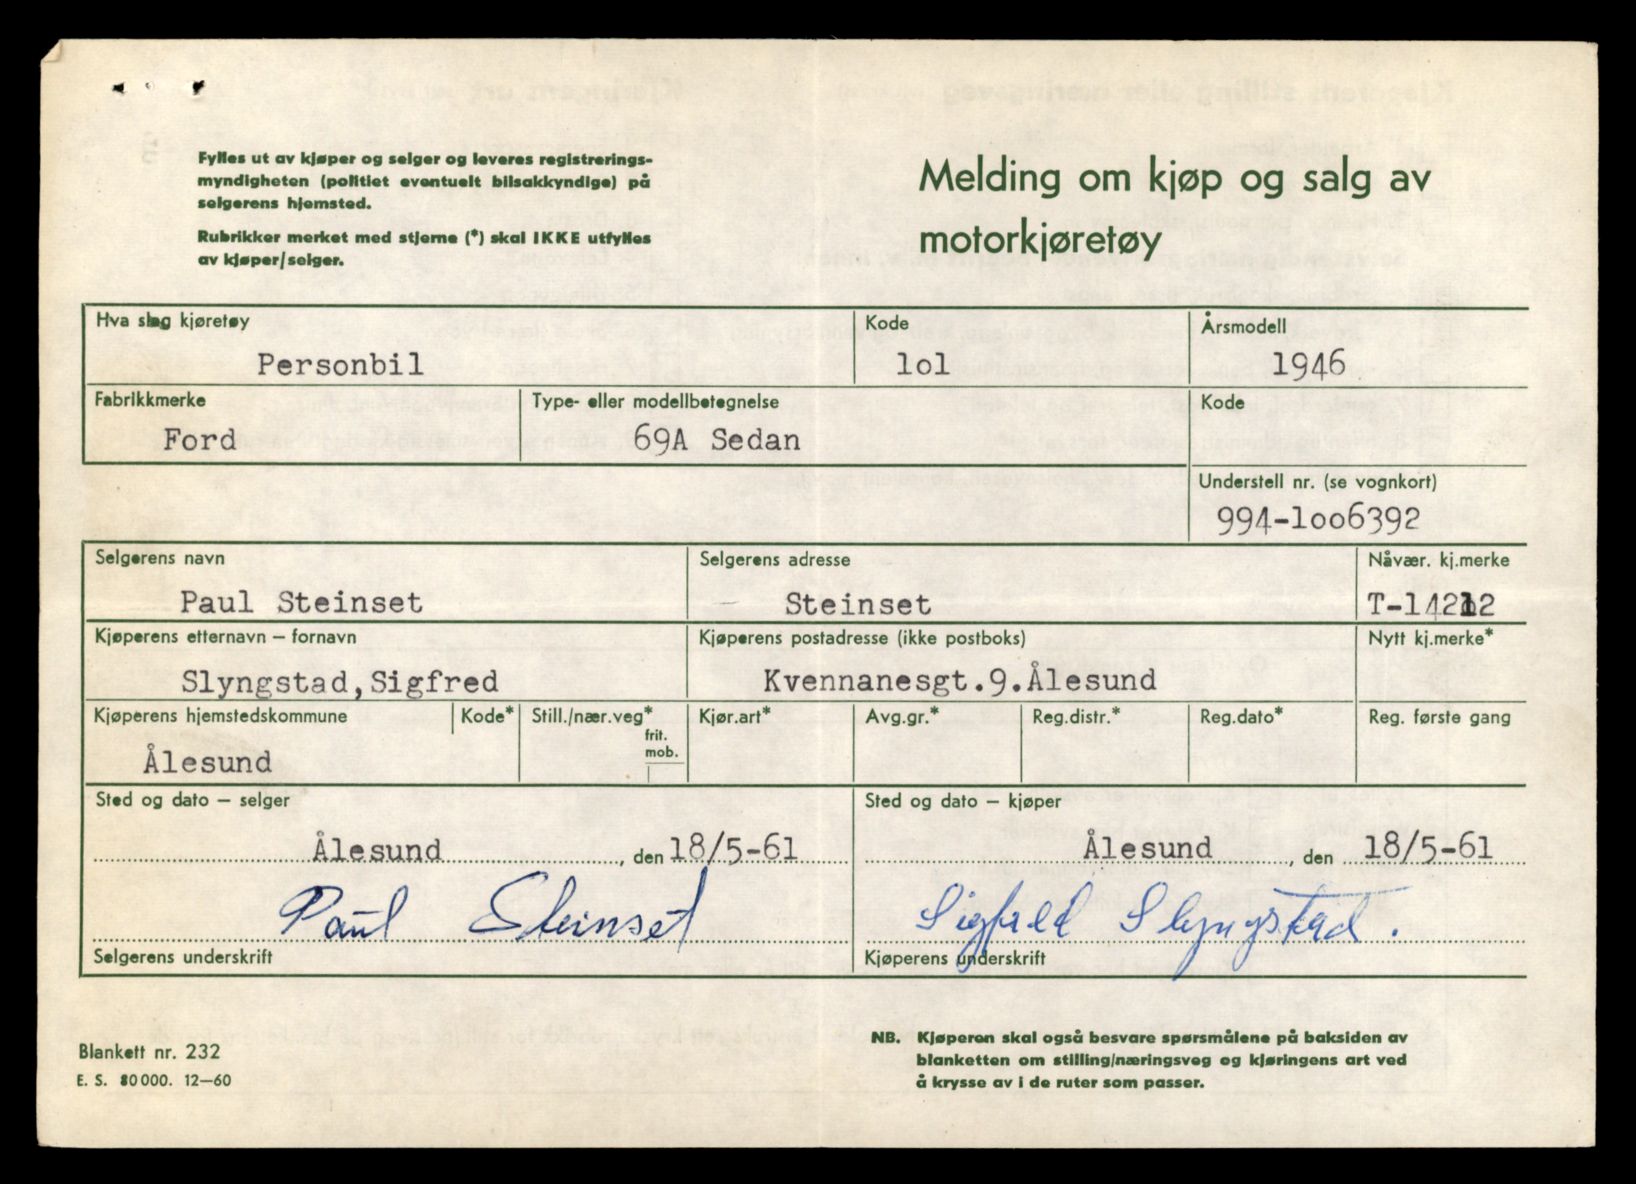 Fylles ut av kjøper og selger og leveres registrerings-
myndigheten (politiet eventuelt bilsakkyndige) på
selgerens hjemsted.
Rubrikker merket med stjerne (*) skal IKKE utfylles
av kjøper/selger.
Melding om kjøp og salg av
motorkjøretøy
Hva slag kjøretøy
Kode
Årsmodell
Personbil
lol
1946
Fabrikkmerke
Type- eller modellbetegnelse
Kode
Ford
69A Sedan
Understell nr. (se vognkort)
994-loo6392
Selgerens navn
Selgerens adresse
Nåvær. kj.merke
Paul Steinset
Steinset
T-14212
Kjøperens etternavn – fornavn
Kjøperens postadresse (ikke postboks)
Nytt kj.merke*
Slyngstad,Sigfred
Kvennanesgt.9.Ålesund
Kjøperens hjemstedskommune
Kode*
Still./nær.veg*
frit.
mob.
Kjør.art*
Avg.gr.*
Reg.distr.*
Reg.dato*
Reg. første gang
Ålesund
Sted og dato – selger
Sted og dato – kjøper
Ålesund, den 18/5-61
Ålesund, den 18/5-61
Paul Steinset
Sigfred Slyngstad.
Selgerens underskrift
Kjøperens underskrift
Blankett nr. 232
E. S. 80000. 12–60
NB. Kjøperen skal også besvare spørsmålene på baksiden av
blanketten om stilling/næringsveg og kjøringens art ved
å krysse av i de ruter som passer.